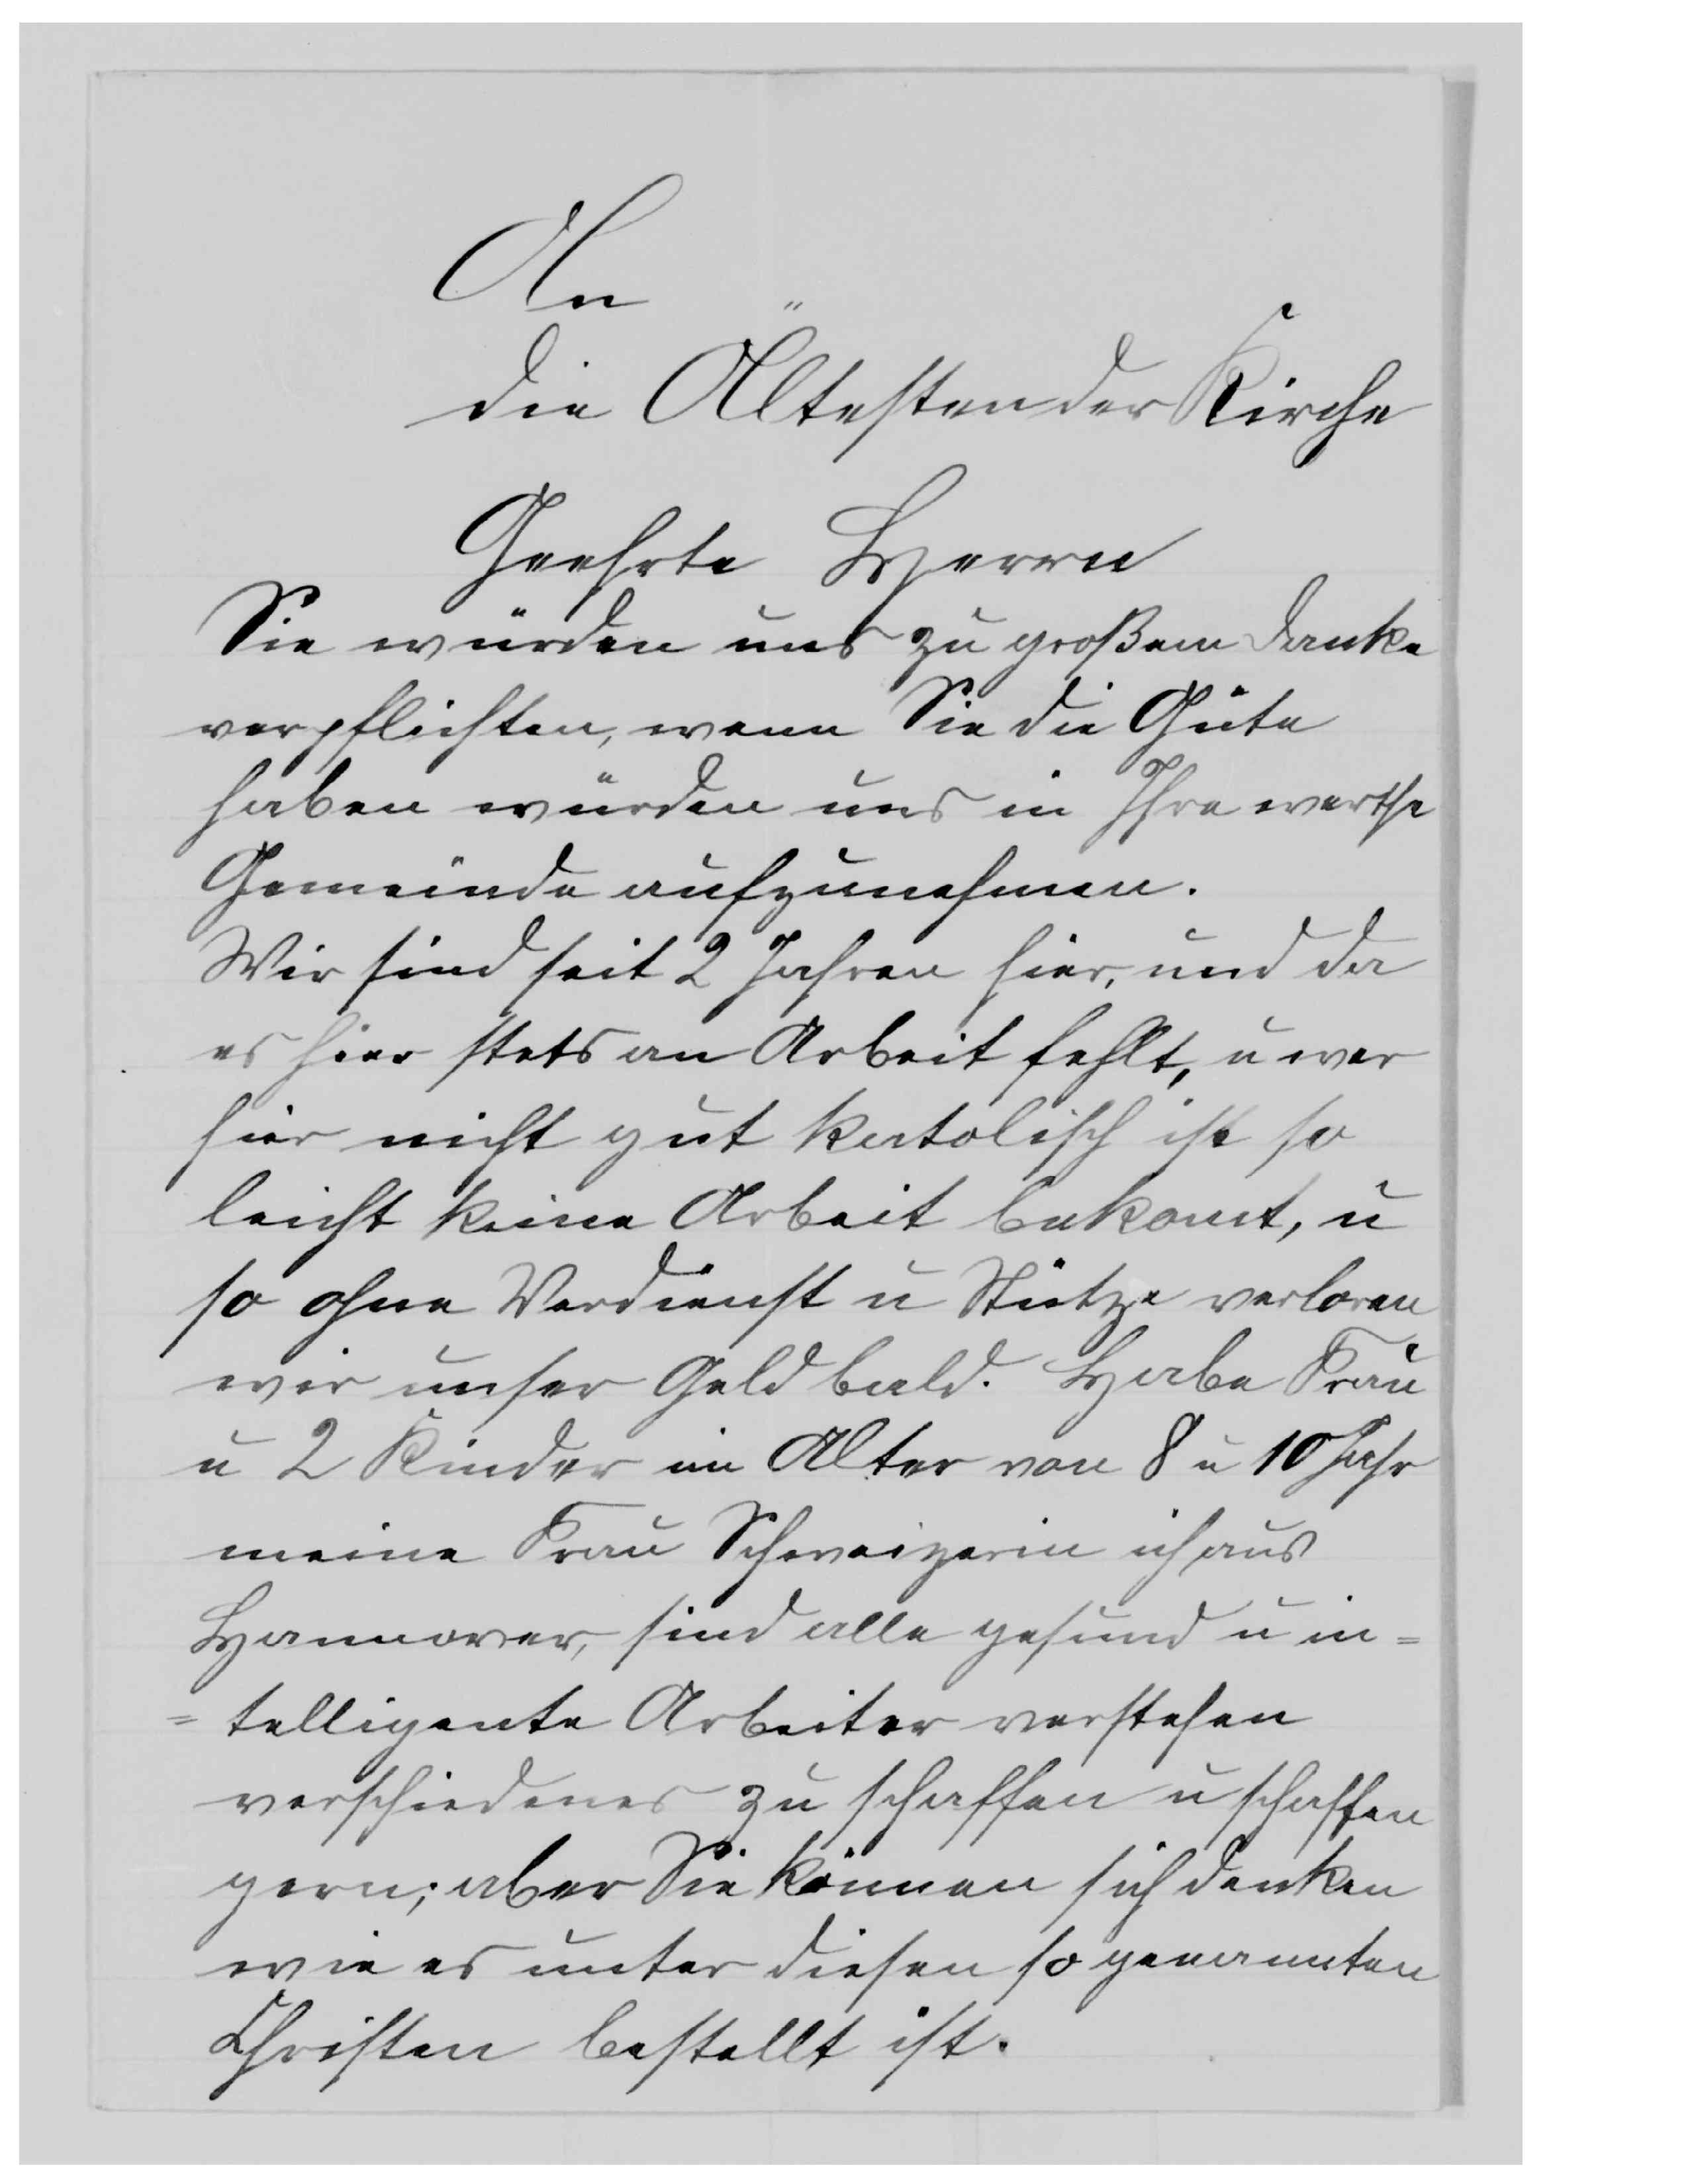 An
die Ältesten der Kirche
Geehrte Herren
Sie würden uns zu großem Danke
verpflichten, wenn Sie die Güte
haben würden uns in Ihre werthe
Gemeinde aufzunehmen.
Wir sind seit 2 Jahren hier, und da
es hier stets an Arbeit fehlt, u wer
hier nicht gut katolisch ist so
leicht keine Arbeit bekomt, u
so ohne Verdienst u Stütze verloren
wir unser Geld bald. Habe Frau
u 2 Kinder im Alter von 8 u 10 Jahr
meine Frau Schweizerin ich aus
Hannover, sind alle gesund u in=
=telligente Arbeiter verstehen
verschiedenes zu schaffen u schaffen
gern; aber Sie können sich denken
wie es unter diesen so genannten
Christen bestellt ist.